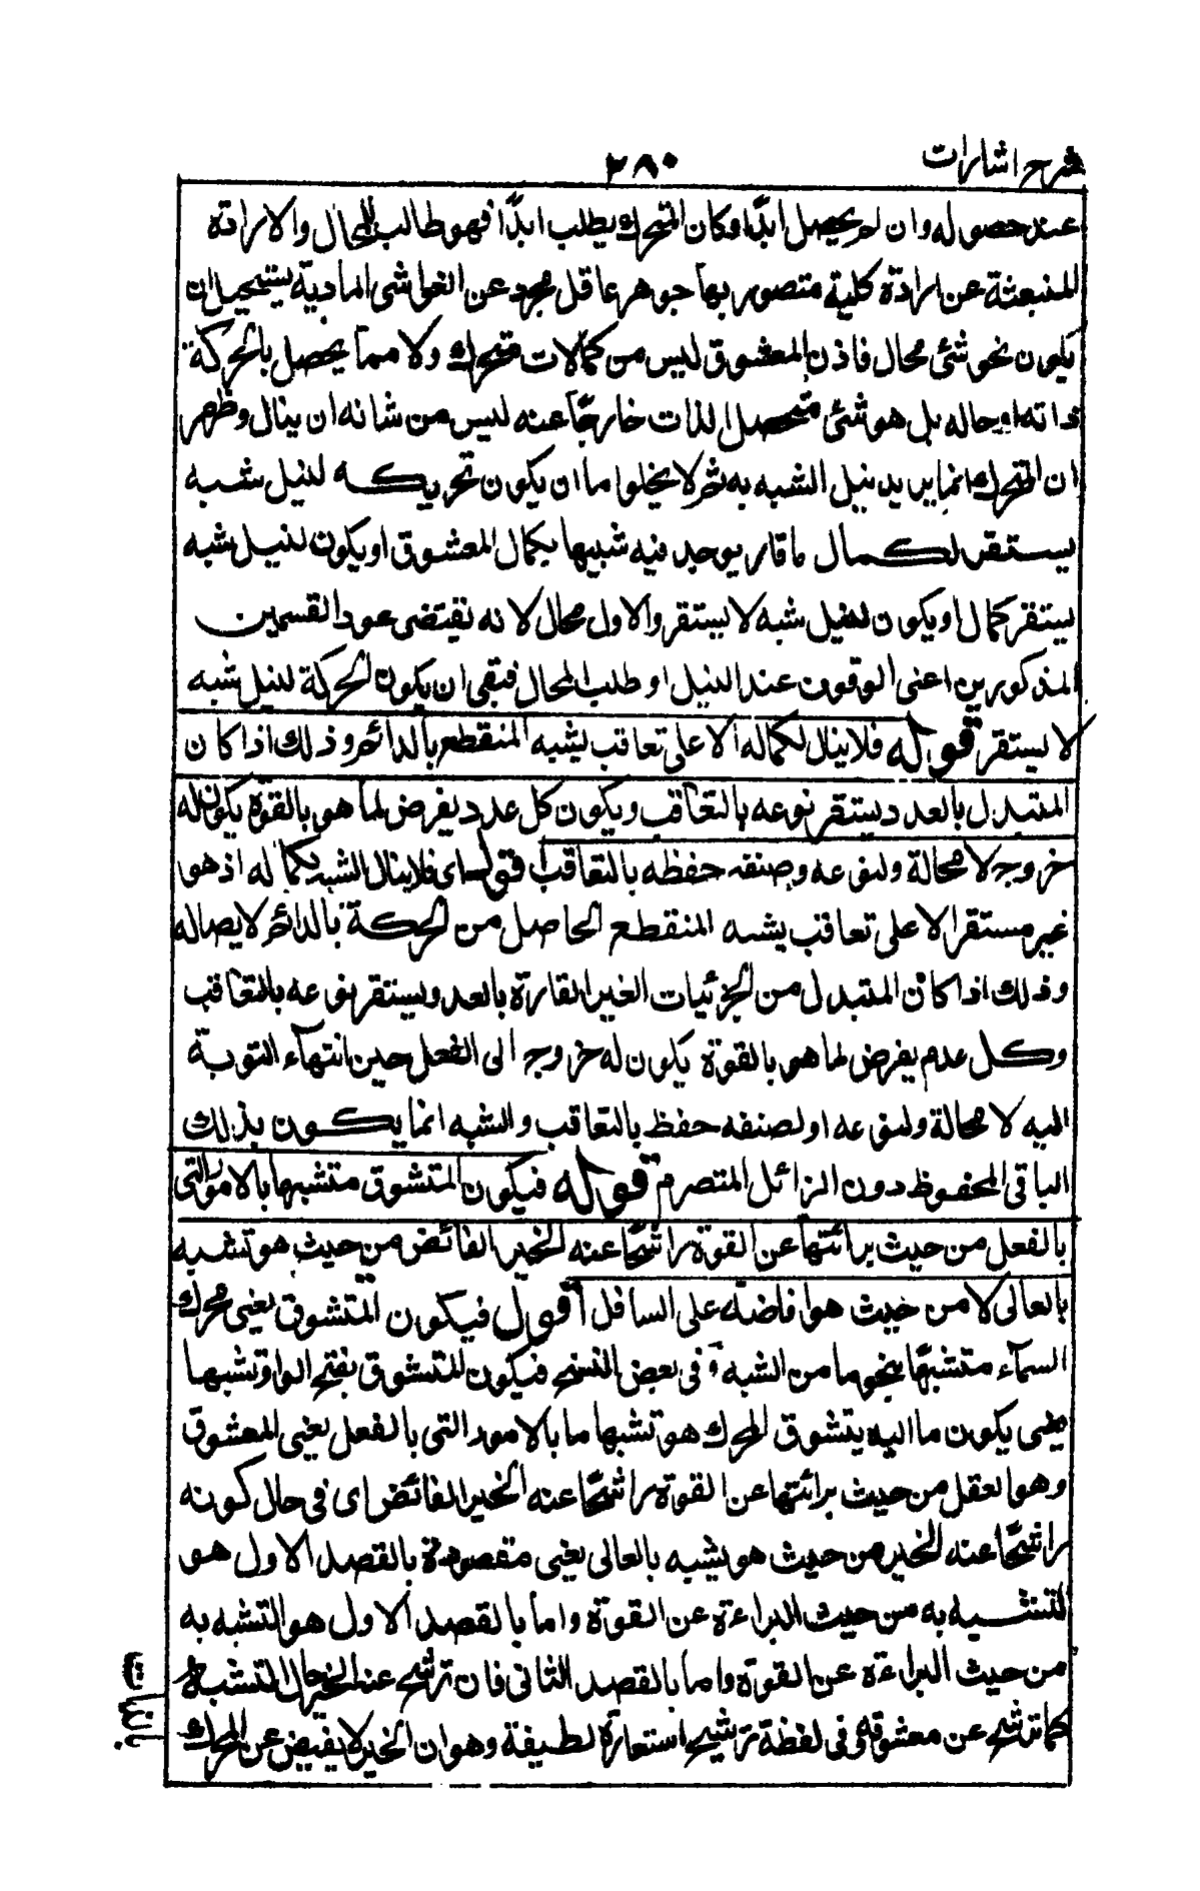 شرح اشارات
٢٨٠
عند حصوله وان لم يحصل ابدًا وكان المتحرك يطلب ابدًا فهو طالب للمحال والارادة
المنبعثة عن ارادة كلية متصور بها جوهر عاقل مجرد عن الغواشى المادية يستحيل ان
يكون نحو شئ محال فاذن المعشوق ليس من كمالات متحرك ولا مما يحصل بالحركة
ذاته او حاله بل هو شئ متحصل الذات خارجًا عنه ليس من شانه ان ينال وظهر
ان المتحرك انما يريد نيل الشبه به ثم لا يخلوا ما ان يكون تحريكه لنيل شبه
يستقر لكمال ما قار يوجد فيه شبيها بكمال المعشوق او يكون لنيل شبه
يستقر كمال او يكون لنيل شبه لا يستقر والاول محال لانه يقتضى عود القسمين
المذكورين اعنى الوقوف عند النيل او طلب المحال فبقى ان يكون الحركة لنيل شبه
لا يستقر قوله فلا ينال لكماله الا على تعاقب يشبه المنقطع بالدائم وذلك اذا كان
المتبدل بالعدد يستقر نوعه بالتعاقب ويكون كل عدد يفرض لما هو بالقوة يكون له
خروج لا محالة ولنوعه وصنفه حفظه بالتعاقب قوله اى فلا ينال الشبه بكماله اذ هو
غير مستقر الا على تعاقب يشبه المنقطع الحاصل من الحركة بالدائم لايصاله
وذلك اذا كان المتبدل من الجزئيات الغير القارة بالعدد ويستقر نوعه بالتعاقب
وكل عدم يفرض لما هو بالقوة يكون له خروج الى الفعل حين انتهاء النوبة
اليه لا محالة ولنوعه او لصنفه حفظ بالتعاقب والشبه انما يكون بذلك
الباقى المحفوظ دون الزائل المتصرم قوله فيكون المتشوق متشبها بالامور التى
بالفعل من حيث برائتها عن القوة راشحًا عنه الخير الفائض من حيث هو تشبيه
بالعالى لا من حيث هو افاضة على السافل اقول فيكون المتشوق يعنى محرك
السماء متشبهًا بنحو ما من الشبه وفى بعض النسخ فيكون للمتشوق بفتح الواو تشبها
يعنى يكون ما اليه يتشوق المحرك هو تشبها ما بالامور التى بالفعل يعنى المعشوق
وهو العقل من حيث برائتها عن القوة راشحًا عنه الخير الفائض اى فى حال كونه
راشحًا عنه الخير من حيث هو يشبه بالعالى يعنى مقصوده بالقصد الاول هو
التشبه به من حيث البراءة عن القوة واما بالقصد الاول هو التشبه به
من حيث البراءة عن القوة واما بالقصد الثانى فان ترشح عنه الخير حال التشبه
كما ترشح عن معشوقه وفى لفظة ترشيح استعارة لطيفة وهو ان الخير لا يفيض عن المحرك